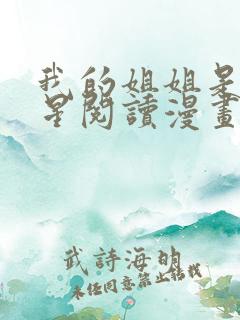 我的姐姐是
星閱讀漫畫
武詩海的
未经同意禁止转载